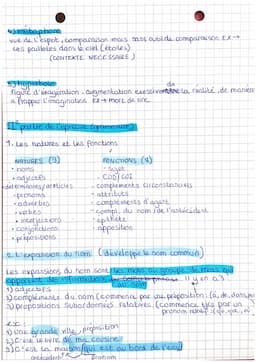 4) métaphore
vue de l'esprit, comparaison mais sans outil de comparaison Ex →
ces paillettes dans le ciel (étoiles)
(CONTEXTE NÉCESSAIRE)
5) hyperbole
figure d'exagération : augmentation excessive de la réalité, de manière
à frapper l'imagination Ex → mort de rire
partie de l'épreuve (grammaire)
1. Les natures et les fonctions
NATURES (9)
FONCTIONS (8)
• noms
• sujet
• adjectifs
• COD/COI
• déterminants/articles
• compléments circonstanciels
• pronoms
• attributs
• adverbes
• compléments d'agent
• verbes
• compl. du nom / de l'antécédent
• interjections
• épithète
• conjonctions
• apposition
• prépositions
2. L'expansion du nom (développe le nom commun)
Les expansions du nom sont les mots ou groupe de mots qui
apportent des informations au nom. Il y en a 3
1) adjectifs
2) compléments du nom (commence par une préposition (à, de, dans,
3) propositions subordonnées relatives (commence tjrs par un
pronom relatif : (qui, que,
ex :
1) Une grande ville
préposition
2) C'est le livre de ma cuisine.
3) C'est la maison qui est au bord de l'eau
antécédent
pronom